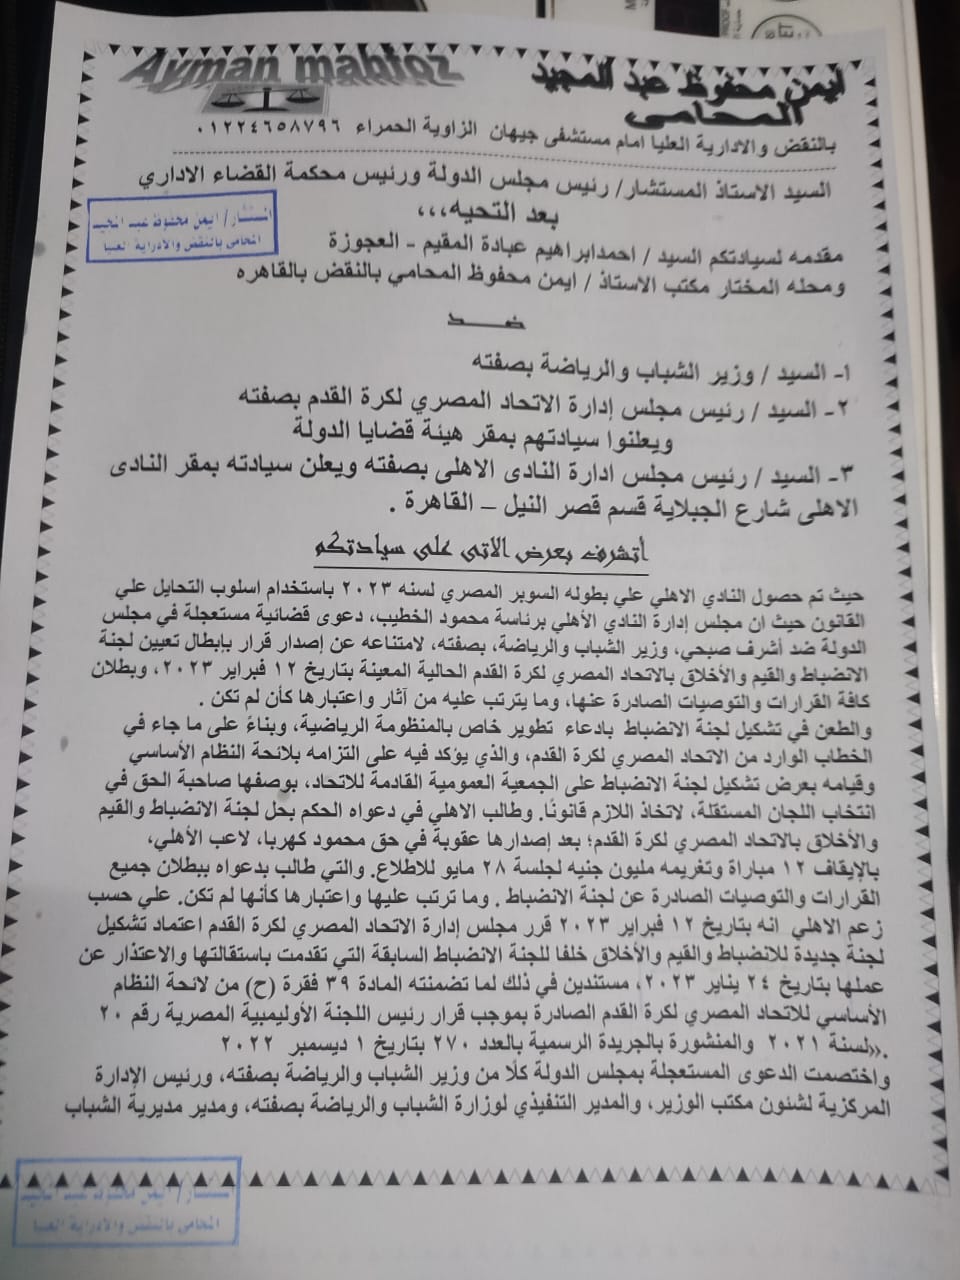 Ayman mahfoz
ايمن محفوظ عبد المجيد
المحامى
بالنقض والادارية العليا امام مستشفى جيهان الزاوية الحمراء ٠١٢٢٤٦٥٨٧٩٦
السيد الاستاذ المستشار/ رئيس مجلس الدولة ورئيس محكمة القضاء الاداري
بعد التحيه،،،
المستشار/ ايمن محفوظ عبد المجيد
المحامى بالنقض والادارية العليا
مقدمه لسيادتكم السيد / احمدابراهيم عبادة المقيم – العجوزة
ومحله المختار مكتب الاستاذ / ايمن محفوظ المحامي بالنقض بالقاهره
ضـــد
١- السيد / وزير الشباب والرياضة بصفته
٢- السيد / رئيس مجلس إدارة الاتحاد المصري لكرة القدم بصفته
ويعلنوا سيادتهم بمقر هيئة قضايا الدولة
٣- السيد / رئيس مجلس ادارة النادى الاهلى بصفته ويعلن سيادته بمقر النادى
الاهلى شارع الجبلاية قسم قصر النيل – القاهرة .
أتشرف بعرض الاتى على سيادتكم
حيث تم حصول النادي الاهلي علي بطوله السوبر المصري لسنه ٢٠٢٣ باستخدام اسلوب التحايل علي
القانون حيث ان مجلس إدارة النادي الأهلي برئاسة محمود الخطيب، دعوى قضائية مستعجلة في مجلس
الدولة ضد أشرف صبحي، وزير الشباب والرياضة، بصفته، لامتناعه عن إصدار قرار بإبطال تعيين لجنة
الانضباط والقيم والأخلاق بالاتحاد المصري لكرة القدم الحالية المعينة بتاريخ ١٢ فبراير ٢٠٢٣، وبطلان
كافة القرارات والتوصيات الصادرة عنها، وما يترتب عليه من آثار واعتبارها كأن لم تكن .
والطعن في تشكيل لجنة الانضباط بادعاء تطوير خاص بالمنظومة الرياضية، وبناءً على ما جاء في
الخطاب الوارد من الاتحاد المصري لكرة القدم، والذي يؤكد فيه على التزامه بلائحة النظام الأساسي
وقيامه بعرض تشكيل لجنة الانضباط على الجمعية العمومية القادمة للاتحاد، بوصفها صاحبة الحق في
انتخاب اللجان المستقلة، لاتخاذ اللازم قانونًا. وطالب الاهلي في دعواه الحكم بحل لجنة الانضباط والقيم
والأخلاق بالاتحاد المصري لكرة القدم؛ بعد إصدارها عقوبة في حق محمود كهربا، لاعب الأهلي،
بالإيقاف ١٢ مباراة وتغريمه مليون جنيه لجلسة ٢٨ مايو للاطلاع. والتي طالب بدعواه ببطلان جميع
القرارات والتوصيات الصادرة عن لجنة الانضباط . وما ترتب عليها واعتبارها كأنها لم تكن. علي حسب
زعم الاهلي انه بتاريخ ١٢ فبراير ٢٠٢٣ قرر مجلس إدارة الاتحاد المصري لكرة القدم اعتماد تشكيل
لجنة جديدة للانضباط والقيم والأخلاق خلفا للجنة الانضباط السابقة التي تقدمت باستقالتها والاعتذار عن
عملها بتاريخ ٢٤ يناير ٢٠٢٣، مستندين في ذلك لما تضمنته المادة ٣٩ فقرة (ح) من لائحة النظام
الأساسي للاتحاد المصري لكرة القدم الصادرة بموجب قرار رئيس اللجنة الأوليمبية المصرية رقم ٢٠
لسنة ٢٠٢١ والمنشورة بالجريدة الرسمية بالعدد ٢٧٠ بتاريخ ١ ديسمبر ٢٠٢٢ ».
واختصمت الدعوى المستعجلة بمجلس الدولة كلًا من وزير الشباب والرياضة بصفته، ورئيس الإدارة
المركزية لشئون مكتب الوزير، والمدير التنفيذي لوزارة الشباب والرياضة بصفته، ومدير مديرية الشباب
المستشار/ ايمن محفوظ عبد المجيد
المحامى بالنقض والادارية العليا